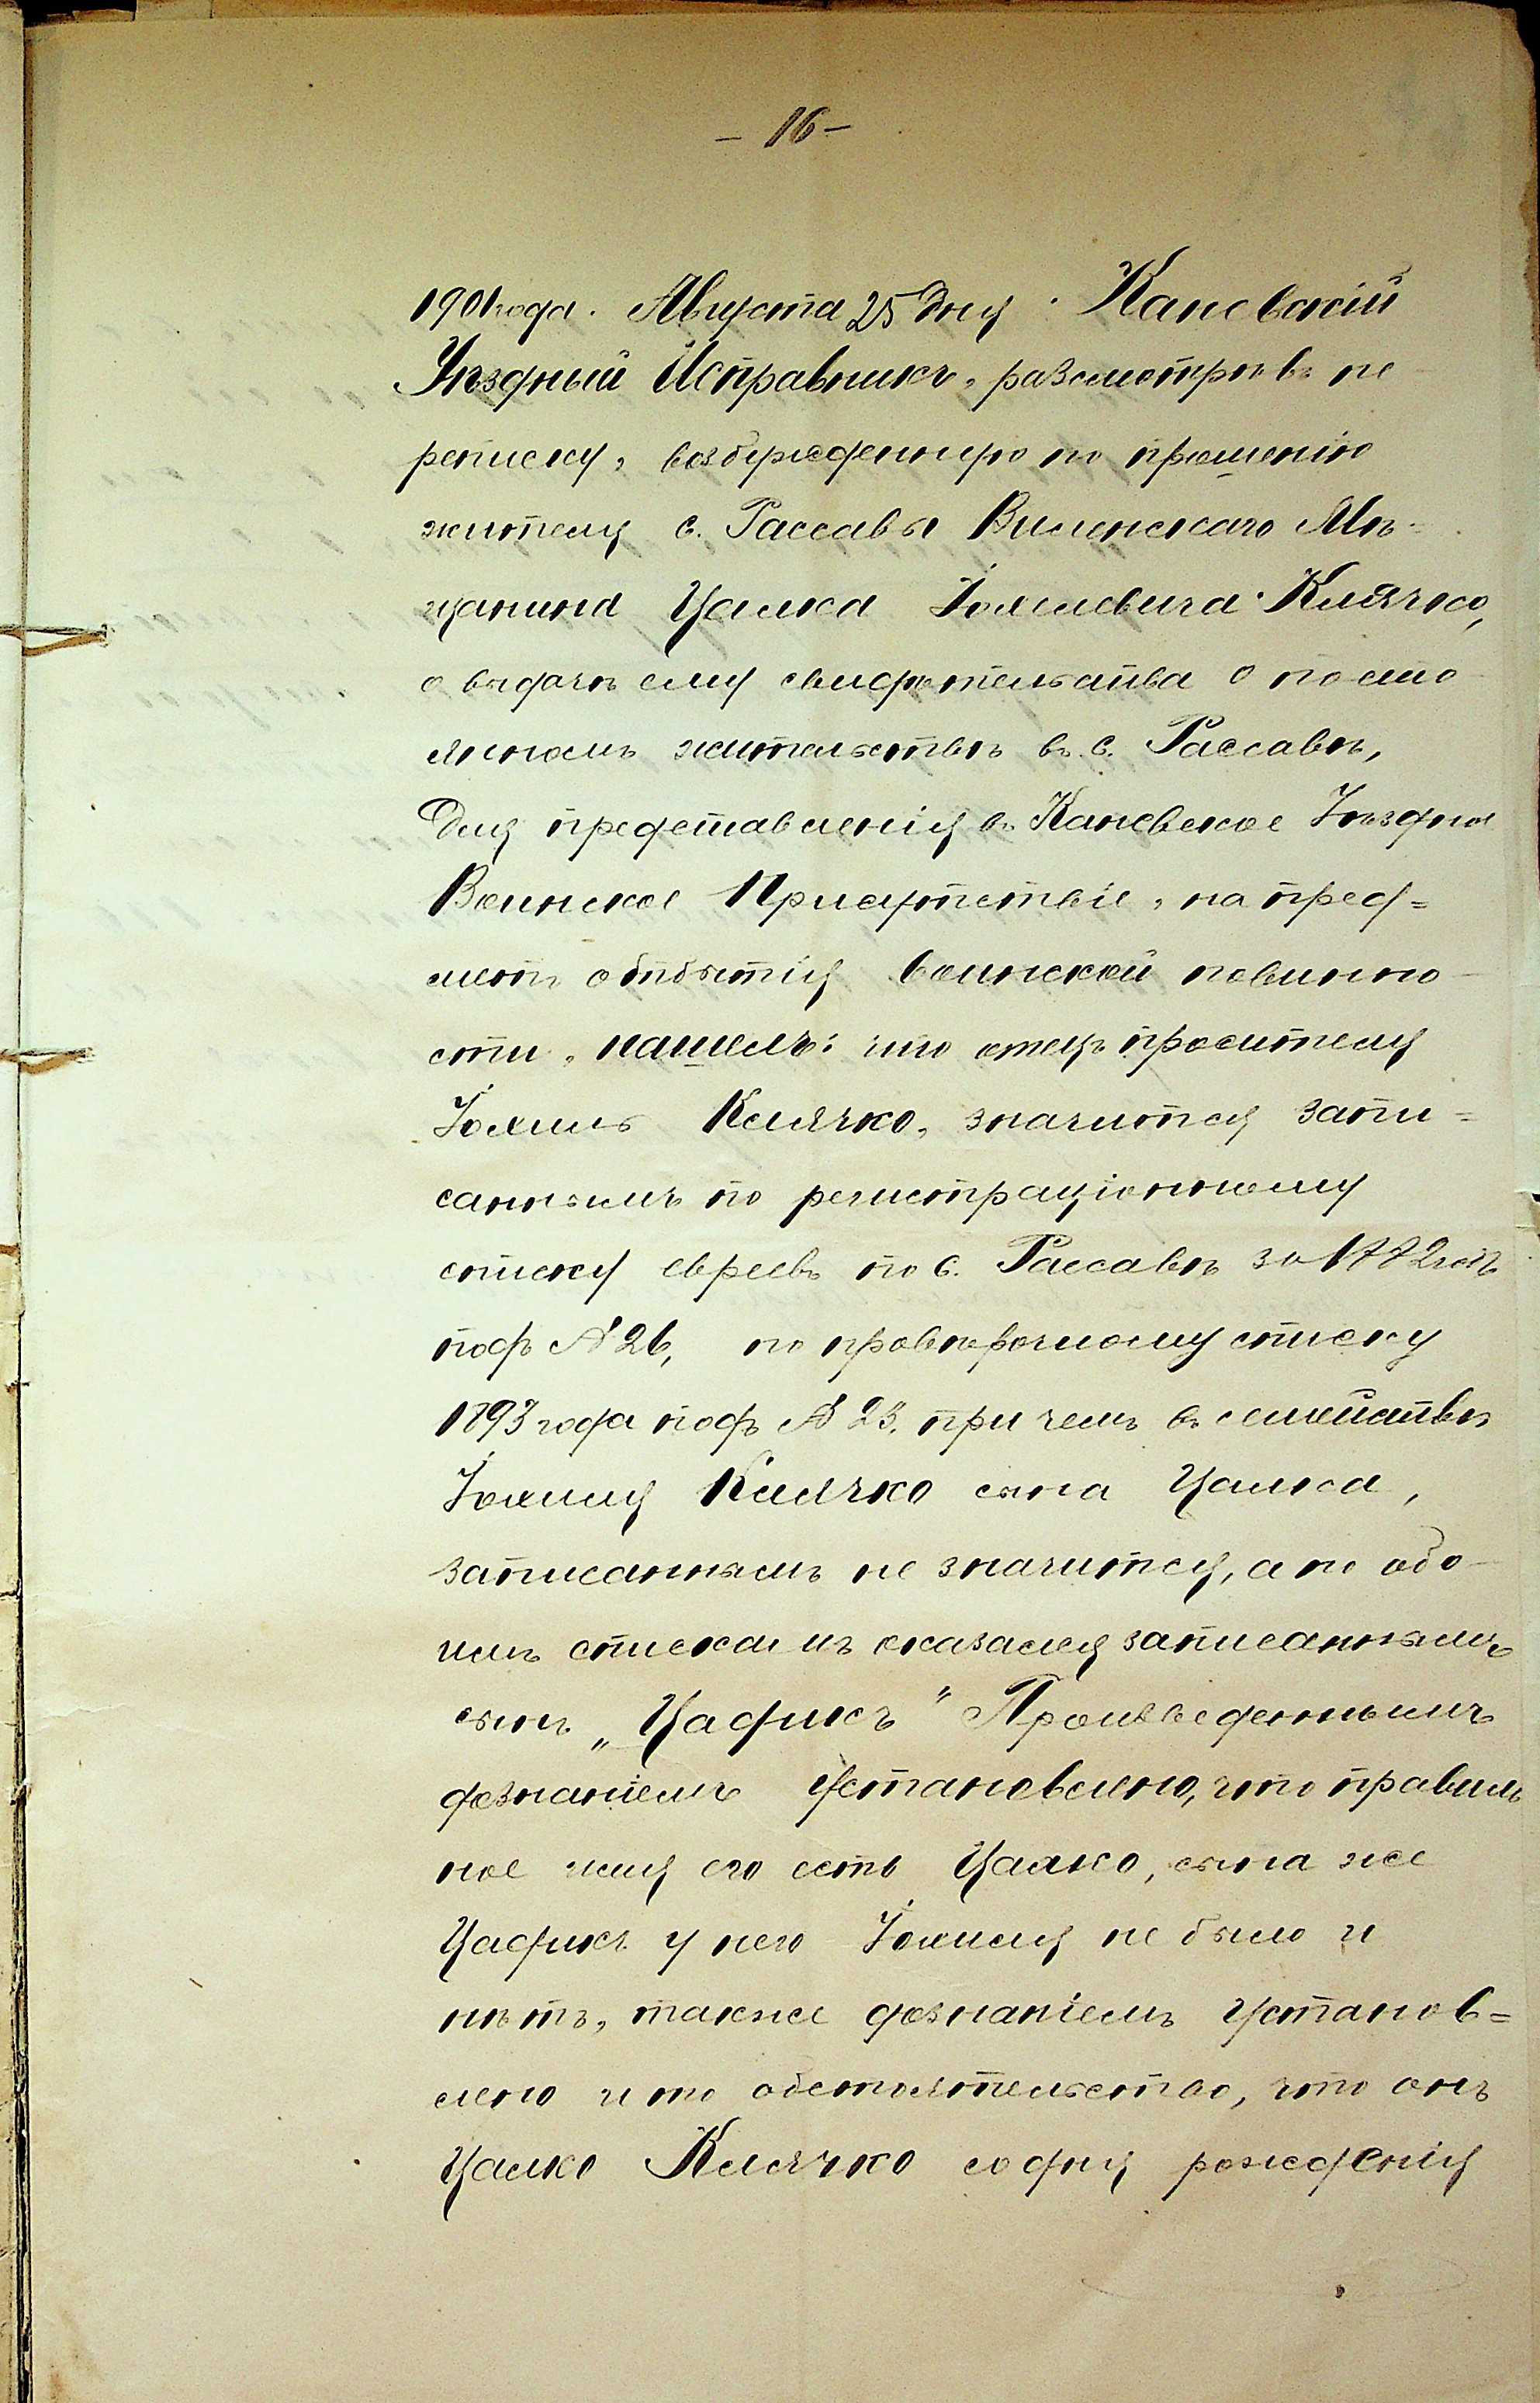 - 16 -
1901 года. Августа 25 дня. Каневскій
Уѣздный Исправникъ, разсмотрѣвъ пе
реписку, возбужденную по прошенію
жителя с. Рассавы Виленскаго Мѣ-
щанина Цалка Іохилевича Клячко,
о выдачѣ ему свидѣтельства о посто
янномъ жительствѣ въ с. Рассавѣ,
для представленія въ Каневское Уѣздное
Воинское Присутствіе, на пред=
метъ отбытія воинской повинно-
сти, нашелъ: что отецъ просителя
Іохиль Клячко, значится запи=
саннымъ по регистраціонному
списку евреевъ по с. Рассавѣ за 1882 годъ
подъ № 26, по провѣрочному списку
1893 года подъ № 23, при чемъ въ семействѣ
Іохиля Клячко сына Цалка,
записаннымъ не значится, а по обо-
имъ спискамъ оказался записаннымъ
сынъ „Цадикъ" Произведеннымъ
дознаніемъ установлено, что правиль
ное имя его есть Цалко, сына же
Цадикъ у него Іохиля не было и
нѣтъ, также дознаніемъ установ=
лено и то обстоятельство, что онъ
Цалко Клячко со дня рожденія